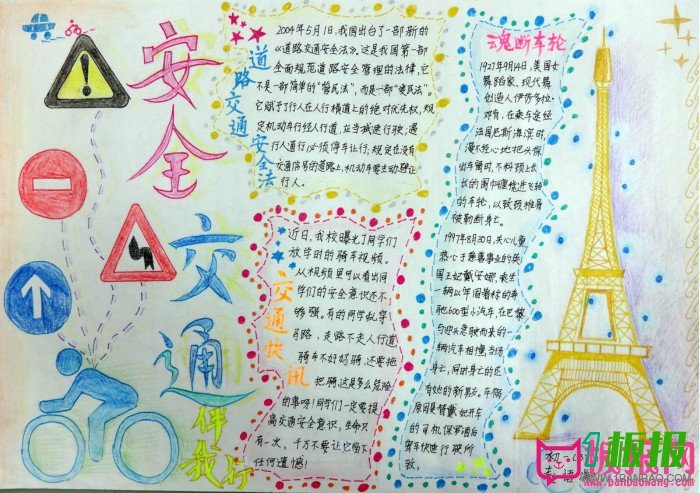 安全
交通
伴我行
道路交通安全法
2004年5月1日,我国出台了一部新的
《道路交通安全法》,这是我国第一部
全面规范道路安全管理的法律,它
不是一部简单的“管民法”,而是一部“爱民法”。
它赋于行人在人行横道上的绝对优先权,规
定机动车行经人行道,应当减速行驶,遇
行人通行必须停车让行,规定在没有
交通信号的道路上,机动车要主动避让
行人。
交通快讯
近日,我校曝光了同学们
放学时的骑车视频。
从视频里可以看出同
学们的安全意识还不
够强。有的同学乱穿
马路,走路不走人行道
骑车不好好骑,还要拖
把骑这是多么危险
的事呀!同学们一定要提
高交通安全意识,生命只
有一次,千万不要让它留下
任何遗憾!
魂断车轮
1927年9月14日,美国女
舞蹈家、现代舞
创造人伊莎多拉·
邓肯,在乘车途经
法国尼斯海滨时,
漫不经心地把头探
出车窗时,不料颈上长
长的围巾缠绕进飞转
的车轮,以致颈椎骨
被勒断身亡。
1997年8月30日,关心儿童
热心于慈善事业的英
国王妃戴安娜,乘坐
一辆以牢固著称的奔
驰600型小汽车,在巴黎
与迎头急驶而来的一
辆汽车相撞,当场
身亡,同时身亡的还
有她的新男友。车祸
原因是替戴妃开车
的司机保罗酒后
驾车快速行驶所
致。
板报网
www.banbaowang.com
1板报
1BANBAO.COM